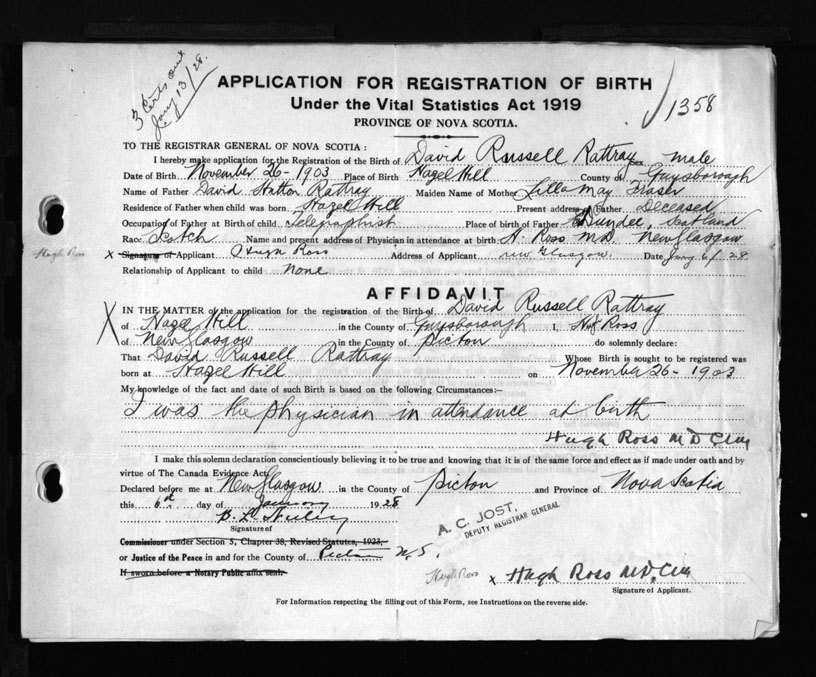 3 Certs out
Jany 13/28.
APPLICATION FOR REGISTRATION OF BIRTH
Under the Vital Statistics Act 1919
1358
PROVINCE OF NOVA SCOTIA.
TO THE REGISTRAR GENERAL OF NOVA SCOTIA :
I hereby make application for the Registration of the Birth of David Russell Rattray Sex male
Date of Birth November 26-1903 Place of Birth Hazel Hill County of Guysborough
Name of Father David Hutton Rattray Maiden Name of Mother Lilla May Fraser
Residence of Father when child was born Hazel Hill Present address of Father Deceased
Occupation of Father at Birth of child Telegraphist Place of birth of Father Dundee, Scotland
Race Scotch Name and present address of Physician in attendance at birth H. Ross M.D. New Glasgow
Hugh Ross x Signature of Applicant Hugh Ross Address of Applicant new Glasgow Date Jany 6/28
Relationship of Applicant to child none
AFFIDAVIT
IN THE MATTER of the application for the registration of the Birth of David Russell Rattray
of Hazel Hill in the County of Guysborough I, H. Ross
of New Glasgow in the County of Pictou do solemnly declare:
That David Russell Rattray Whose Birth is sought to be registered was
born at Hazel Hill on November 26-1903
My knowledge of the fact and date of such Birth is based on the following Circumstances:—
I was the physician in attendance at birth
Hugh Ross M D C M
I make this solemn declaration conscientiously believing it to be true and knowing that it is of the same force and effect as if made under oath and by
virtue of The Canada Evidence Act.
Declared before me at New Glasgow in the County of Pictou and Province of Nova Scotia
this 6th day of January 1928
A. C. JOST,
DEPUTY REGISTRAR GENERAL
Signature of
Commissioner under Section 5, Chapter 38, Revised Statutes, 1923,
or Justice of the Peace in and for the County of Pictou N.S.
If sworn before a Notary Public affix seal.
Hugh Ross x Hugh Ross M.D. C M
Signature of Applicant.
For Information respecting the filling out of this Form, see Instructions on the reverse side.